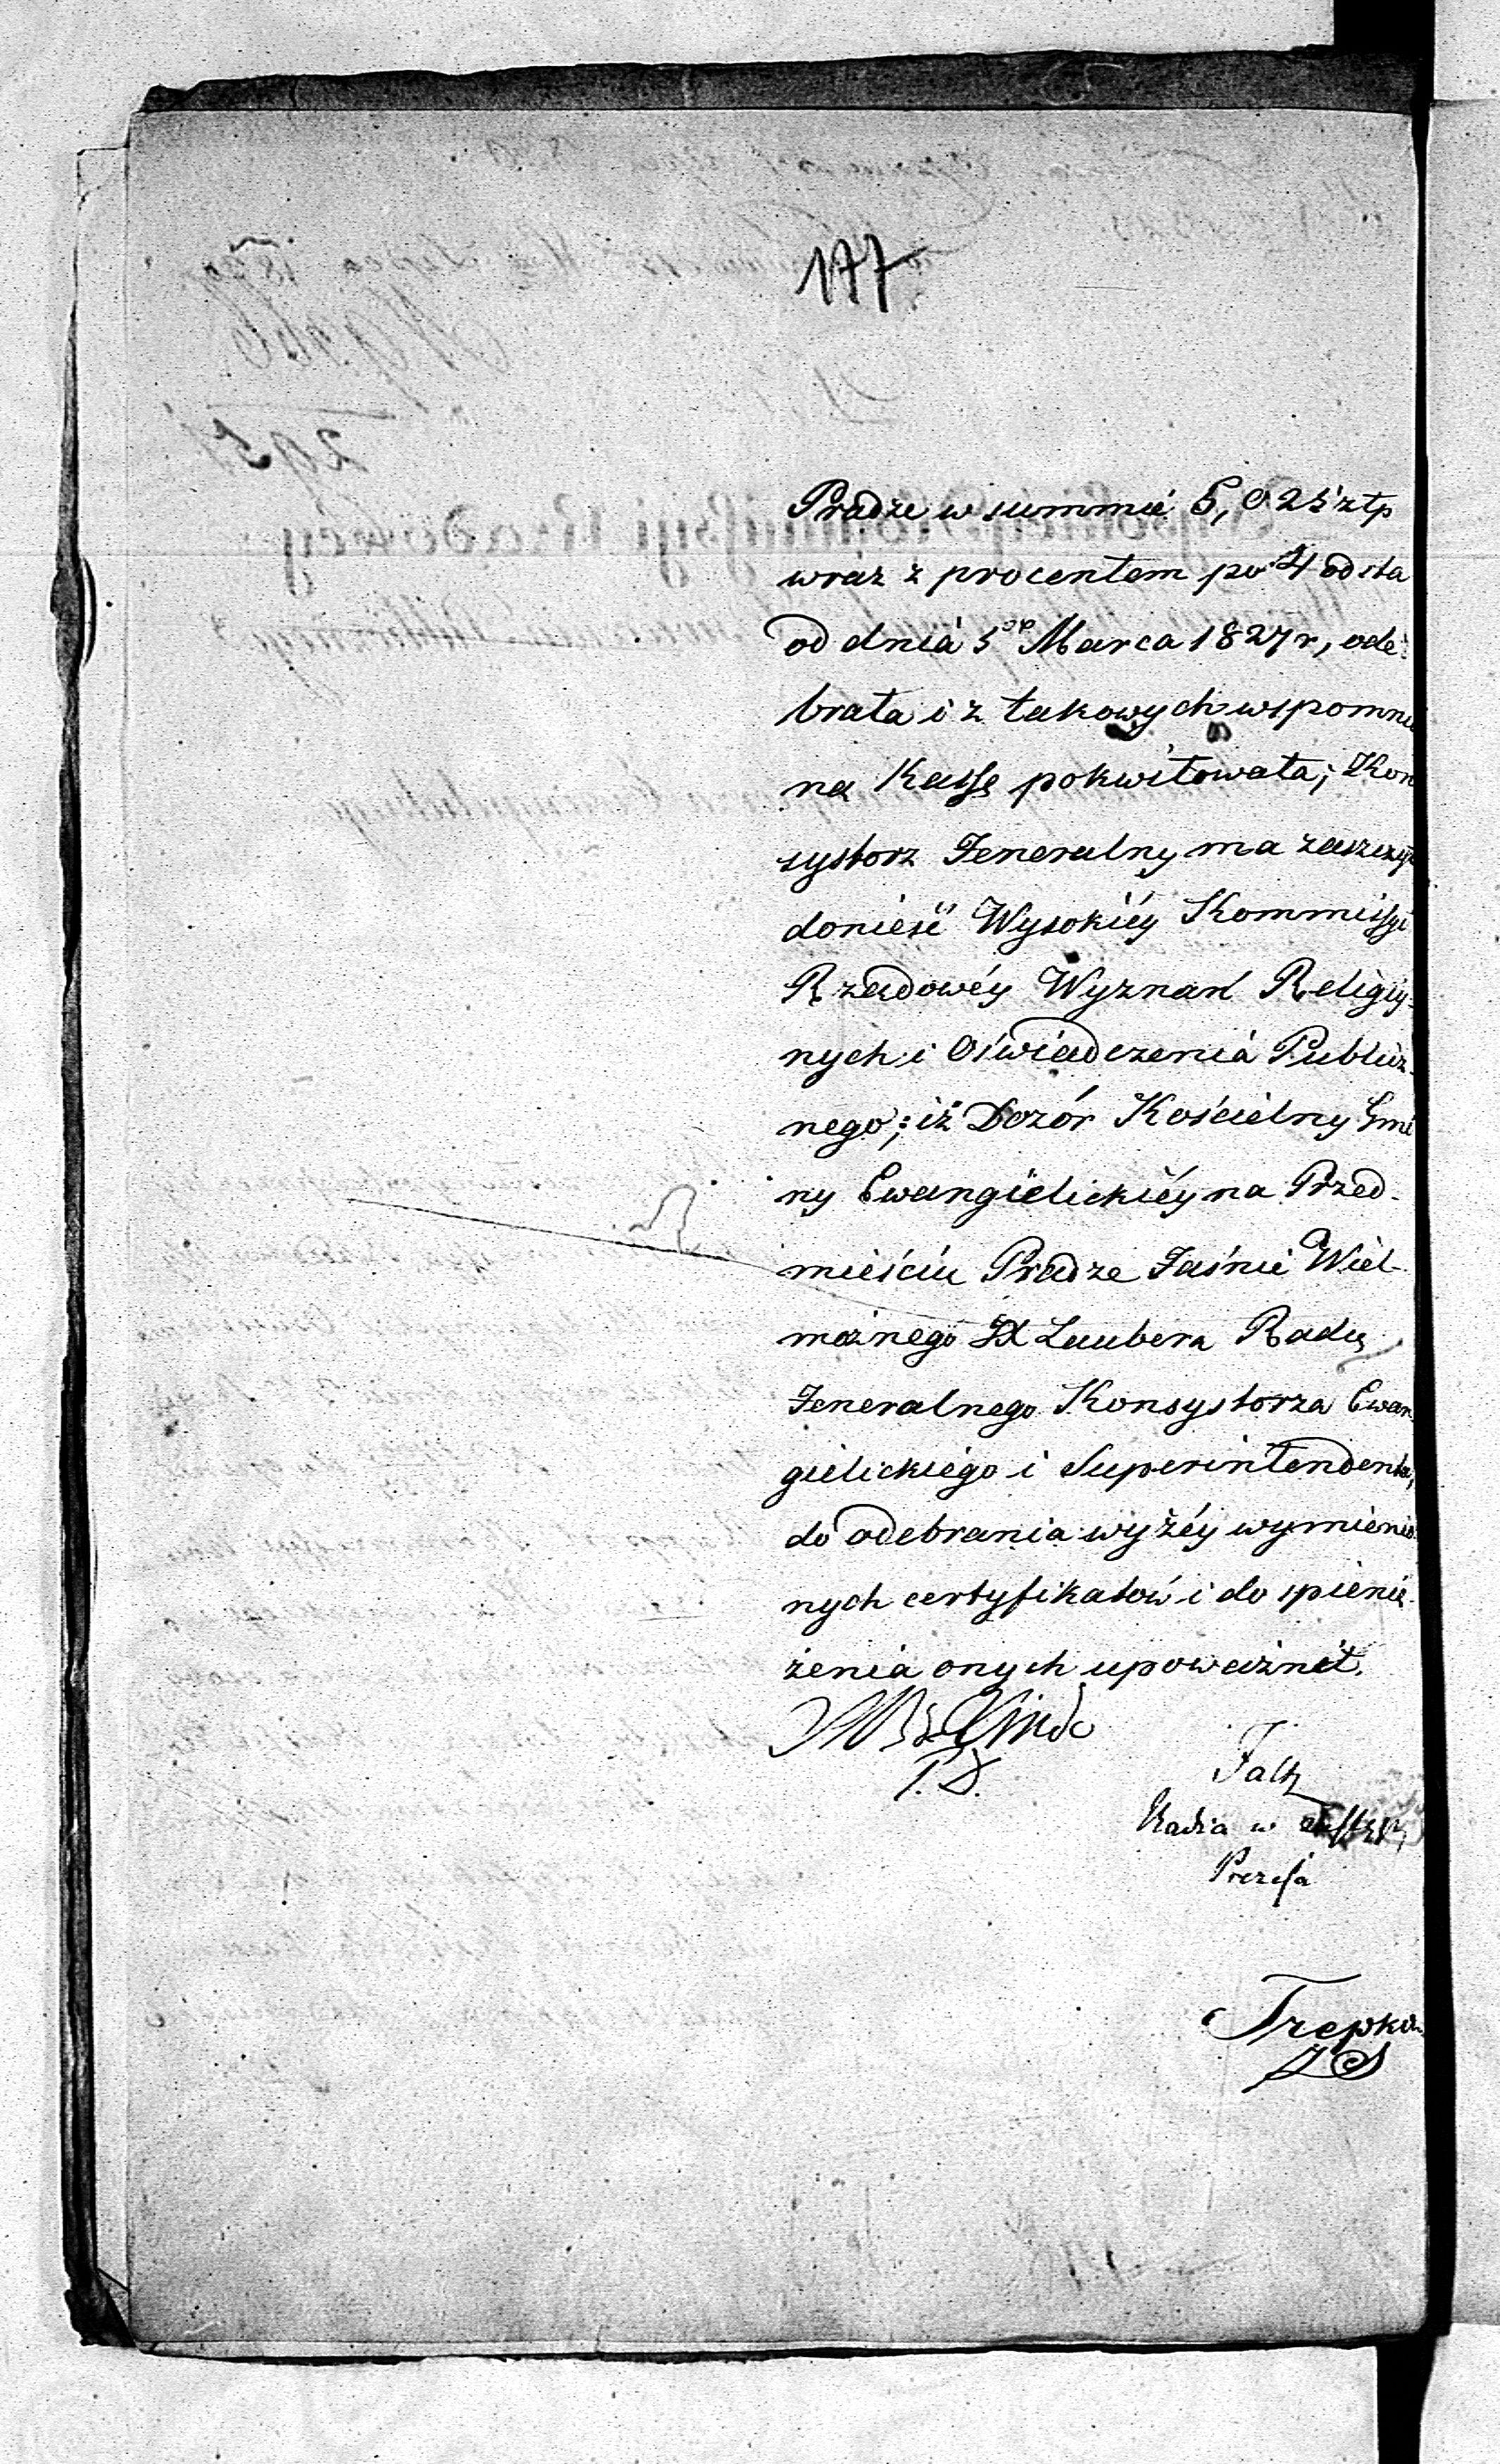 177
Pradze w summie 5,025 ztp
wraz z procentem po 4 od sta
od dnia 5go Marca 1827 r, ode-
brała i z takowych wspomnio
na Kassę pokwitowała; Kon
systorz Jeneralny ma zaszczyt
donieść Wysokiéy Kommissyi
Rządowéy Wyznań Religiy-
nych i Oświadczenia Publicz-
nego; iż Dozór Kościelny Gmi
ny Ewangielickiéy na Przed-
mieściu Pradze Jaśnie Wiel-
możnego JX Laubera Radcę
Jeneralnego Konsystorza Ewan
gielickiego i Superintendenta,
do odebrania wyżéy wymienio
nych certyfikatów i do spienię-
żenia onych upoważnił.
Falz
Radca w
Prezesa